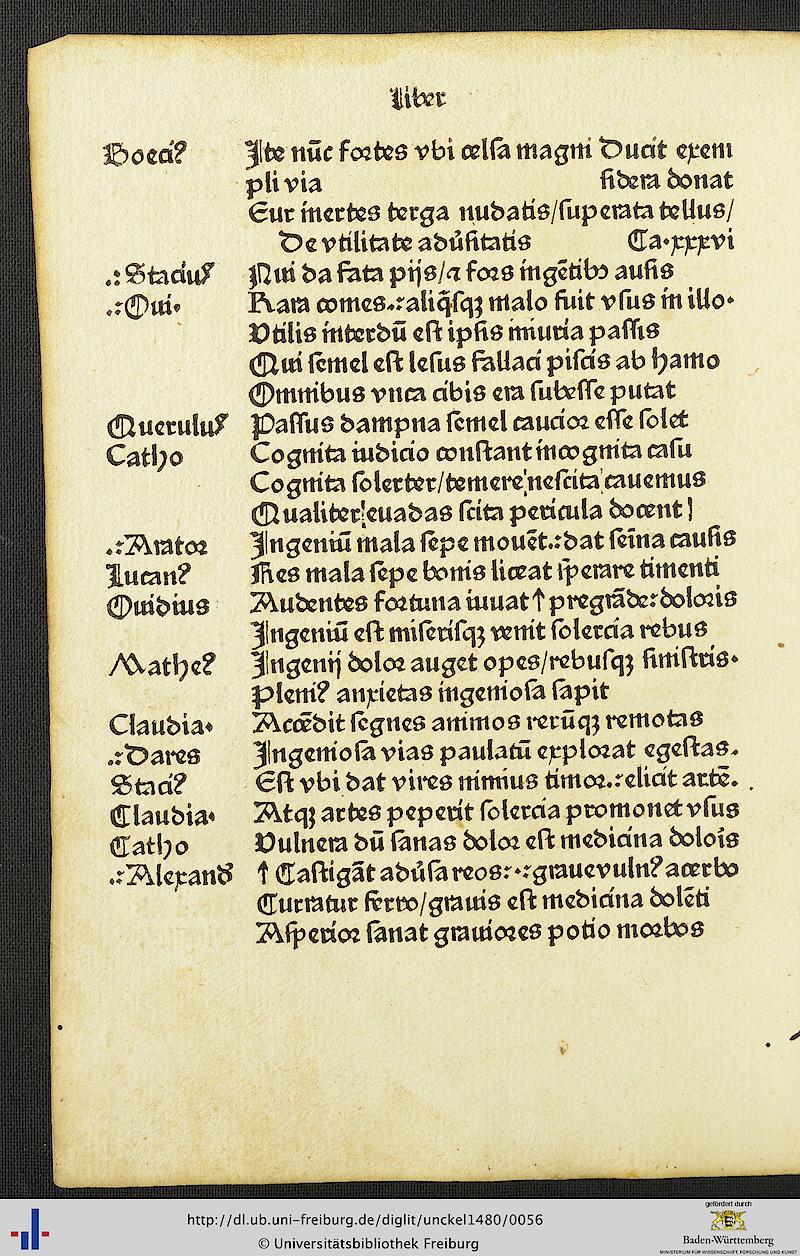 Liber
Boeciꝰ Ite nūc fortes vbi celsa magni Ducit exem
pli via sidera donat
Cur inertes terga nudatis/superata tellus/
De vtilitate adūsitatis Ca.xxxvi
.: Staciuꝰ Nui da fata pijs/⁊ fors ingētibꝰ ausis
.: Oui. Rara comes.: aliq̄sqꝫ malo fuit vsus in illo.
Vtilis interdū est ipsis iniuria passis
Qui semel est lesus fallaci piscis ab hamo
Omnibus vnca cibis era subesse putat
Queruluꝰ Passus dampna semel caucior esse solet
Catho Cognita iudicio constant incognita casu
Cognita solerter/temere nescita cauemus
Qualiter euadas scita pericula docent
.: Arator Ingeniū mala sepe mouēt.: dat seīna causis
Lucanꝰ Res mala sepe bonis liceat sperare timenti
Ouidius Audentes fortuna iuuat ↑ pregrāde: doloris
Ingeniū est miserisqꝫ venit solercia rebus
Matheꝰ Ingenij dolor auget opes/rebusqꝫ sinistris.
Pleniꝰ anxietas ingeniosa sapit
Claudia. Accēdit segnes animos rerūqꝫ remotas
.: Dares Ingeniosa vias paulatū explorat egestas.
Staciꝰ Est vbi dat vires nimius timor.: elicit artē.
Claudia. Atqꝫ artes peperit solercia promonet vsus
Catho Vulnera dū sanas dolor est medicina dolois
.: Alexand ↑ Castigāt adūsa reos:.: graue vulnꝰ acerbo
Curratur ferro/grauis est medicina dolēti
Asperior sanat grauiores potio morbos
http://dl.ub.uni-freiburg.de/diglit/unckel1480/0056
© Universitätsbibliothek Freiburg
gefördert durch
Baden-Württemberg
MINISTERIUM FÜR WISSENSCHAFT, FORSCHUNG UND KUNST